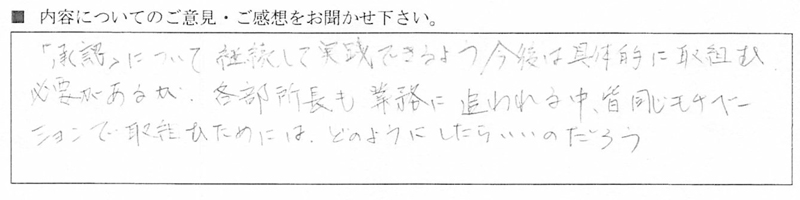 ■ 内容についてのご意見・ご感想をお聞かせ下さい。
「承認」について継続して実践できるよう今後は具体的に取組む
必要があるが、各部所長も業務に追われる中、皆同じモチベー
ションで取組むためには、どのようにしたらいいのだろう